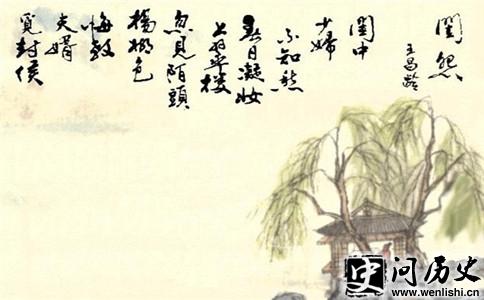 閨怨
王昌齡
閨中
少婦
不知愁
春日凝妝
上翠楼
忽見陌頭
楊柳色
悔教
夫婿
覓封侯
史 问历史
www.wenlishi.cn